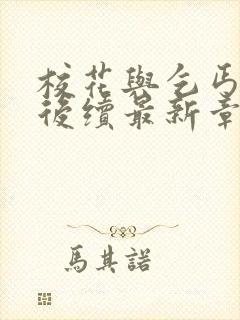 校花與乞丐
後續最新章
馬其諾